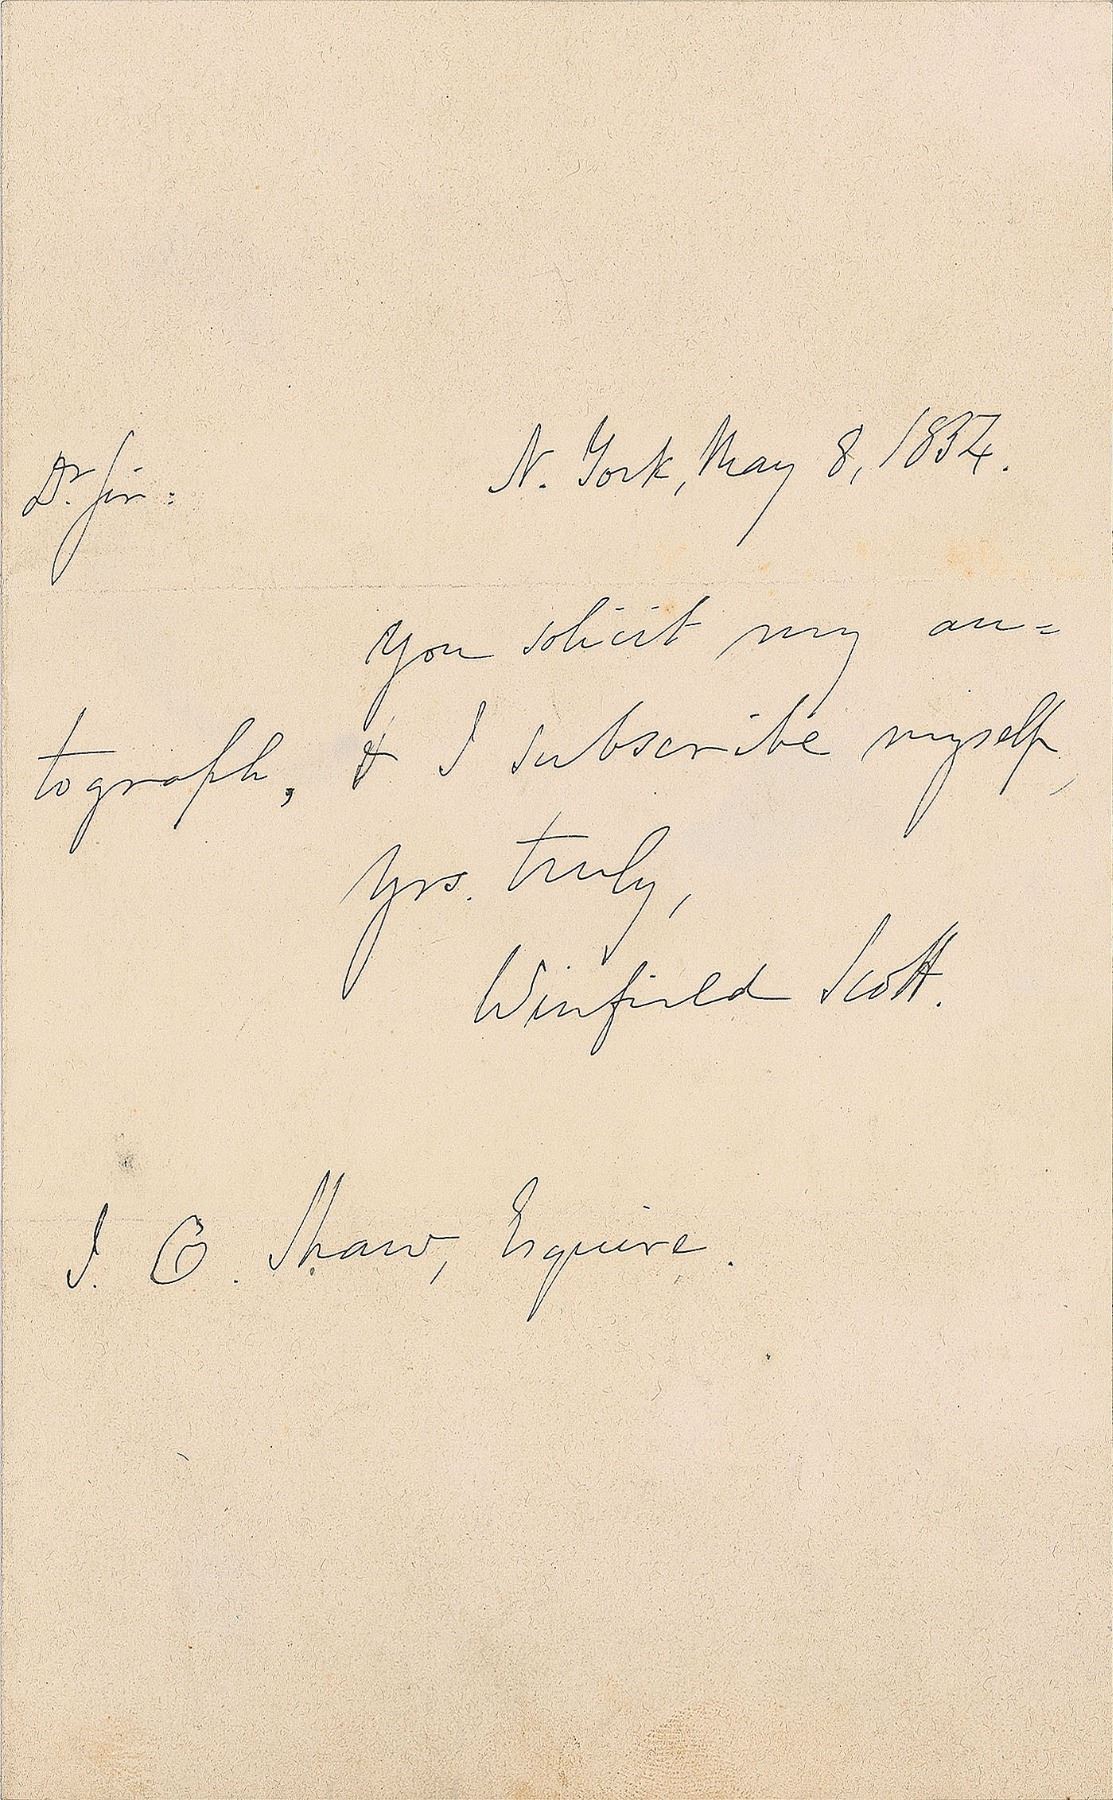 Dr. Sir: N. York, May 8, 1854.
You solicit my au=
tograph, & I subscribe myself,
Yrs. truly,
Winfield Scott.
J. C. Shaw, Esquire.